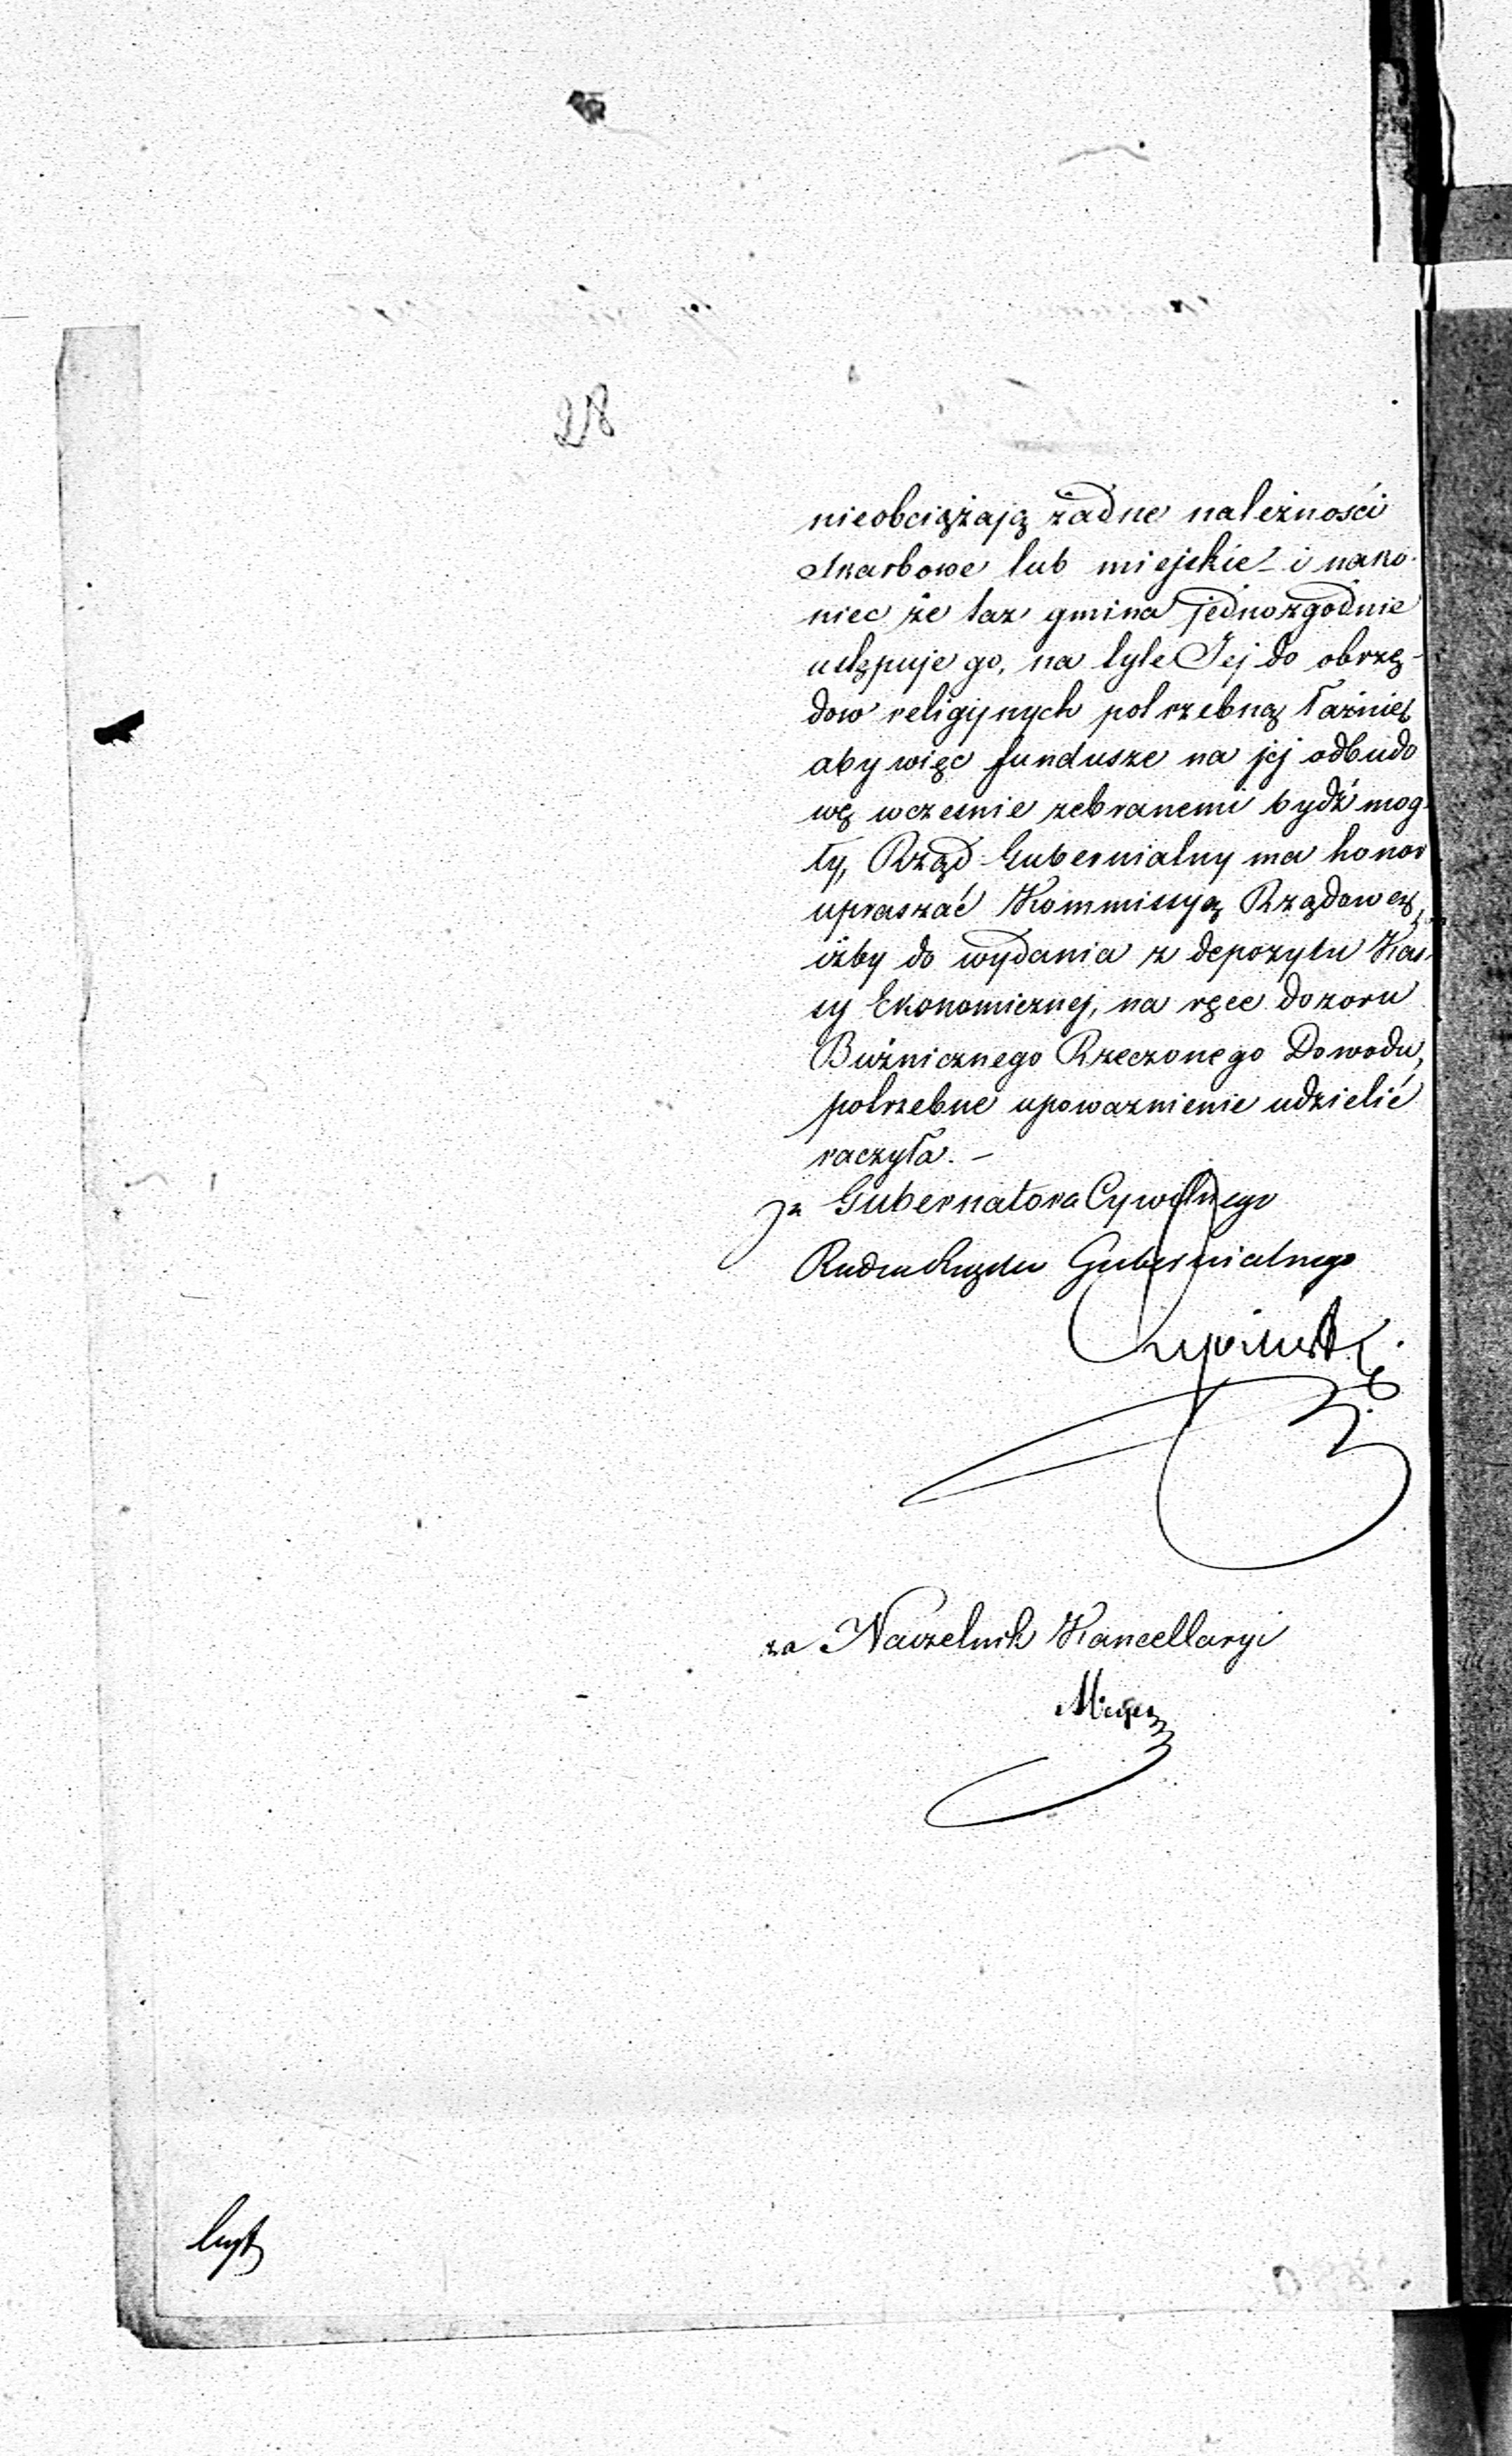 28
nieobciążają żadne należności
skarbowe lub miejskie – i nako-
niec że taż gmina jednozgodnie
ustępuje go, na tyle Jej do obrzę-
dow religijnych potrzebną łaźnię
aby więc fundusze na jej odbudo
wę wcześnie zebranemi bydź mog-
ły, Rząd Gubernialny ma honor
upraszać Kommissyą Rządową,
iżby do wydania z depozytu Kas-
sy Ekonomicznej, na ręce dozoru
Bużnicznego Rzeczonego Dowodu,
potrzebne upoważnienie udzielić
raczyła. –
Za Gubernatora Cywilnego
Radca Rządu Gubernialnego
za Naczelnik Kancellaryi